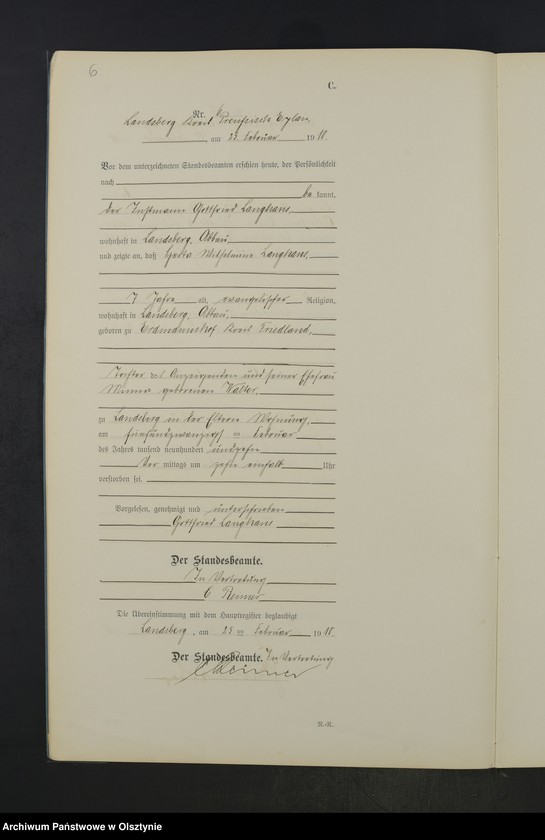 6
C.
Nr. 6
Landsberg Kreis Preußisch Eylau,
am 25. Februar 1918.
Vor dem unterzeichneten Standesbeamten erschien heute, der Persönlichkeit
nach
be kannt,
der Instmann Gottfried Langhans,
wohnhaft in Landsberg, Abbau,
und zeigte an, daß Herta Wilhelmine Langhans,
7 Jahre alt, evangelischer Religion,
wohnhaft in Landsberg, Abbau,
geboren zu Erdmannshof Kreis Friedland,
Tochter des Anzeigenden und seiner Ehefrau
Minna geborenen Walter,
zu Landsberg in der Eltern Wohnung,
am fünfundzwanzigsten Februar
des Jahres tausend neunhundert
Vor mittags um zehn einhalb Uhr
verstorben sei.
Vorgelesen, genehmigt und unterschrieben
Gottfried Langhans
Der Standesbeamte.
In Vertretung
C Reimer
Die Übereinstimmung mit dem Hauptregister beglaubigt
Landsberg, am 25 ten Februar 1918.
Der Standesbeamte. In Vertretung
C Reimer
R.-R.
Archiwum Państwowe w Olsztynie